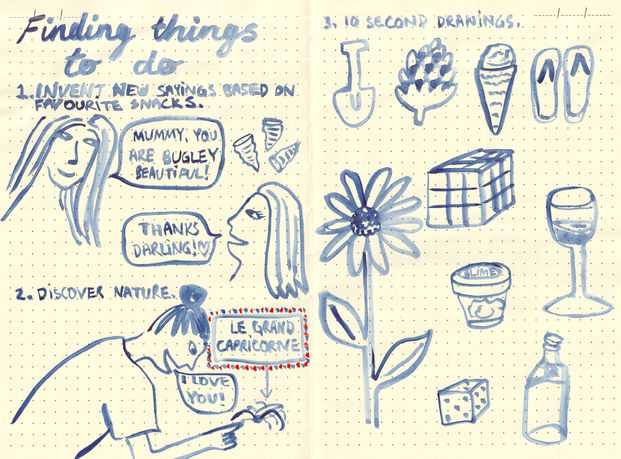 Finding things
to do
1. INVENT NEW SAYINGS BASED ON
FAVOURITE SNACKS.
MUMMY, YOU
ARE BUGLEY
BEAUTIFUL!
THANKS
DARLING!♡
2. DISCOVER NATURE.
LE GRAND
CAPRICORNE
I LOVE
YOU!
3. 10 SECOND DRAWINGS.
SLIME